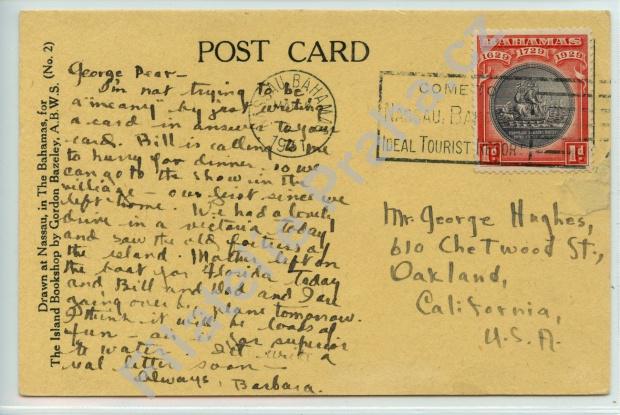 POST CARD
Drawn at Nassau, in The Bahamas, for
The Island Bookshop by Gordon Bazeley, A.B.W.S. (No. 2)
George, Dear—
I'm not trying to be
a "meany" by just writing
a card in answer to your
card. Bill is calling to me
to hurry for dinner so we
can go to the show in the
village — our first since we
left home. We had a lovely
drive in a victoria today
and saw the old forties of
the island. Mother left on
the boat for Florida today
and Bill and Dad and I are
going over by plane tomorrow.
I think it will be loads of
fun — far superior
to water. I'll write a
real letter soon —
Always, Barbara.
NASSAU BAHAMAS
COME TO
NASSAU, BA
IDEAL TOURIST
BAHAMAS
1629 1729 1929
1d 1d
Mr. George Hughes,
610 Chetwood St.,
Oakland,
California,
U.S.A.
Filatelie Praha cz